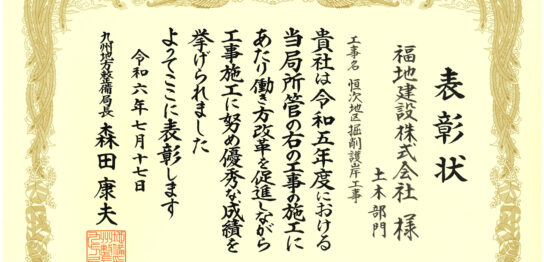 表彰状
土木部門
福地建設株式会社 様
工事名 恒次地区掘削護岸工事
貴社は令和五年度における
当局所管の右の工事の施工に
あたり働き方改革を促進しながら
工事施工に努め優秀な成績を
挙げられました
よってここに表彰します
令和六年七月十七日
九州地方整備局長 森田康夫